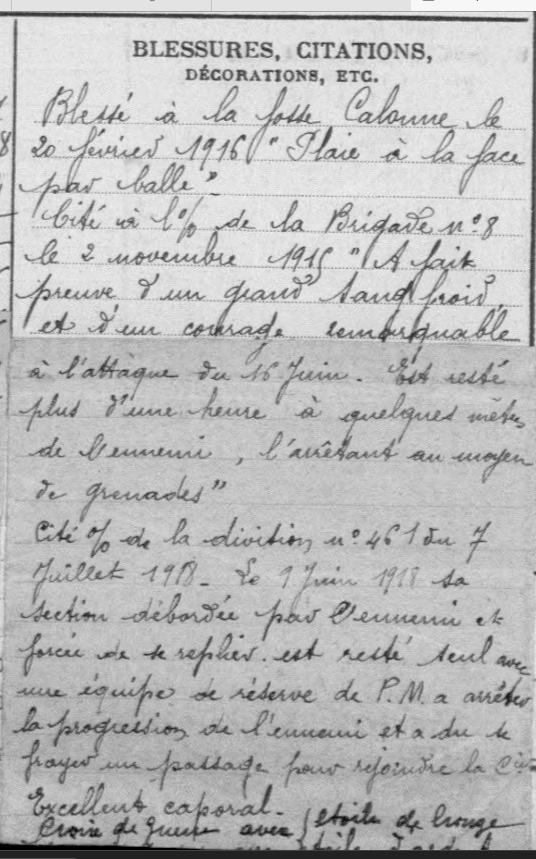 BLESSURES, CITATIONS,
DÉCORATIONS, ETC.
Blessé à la fosse Calonne le
20 février 1916 " Plaie à la face
par balle".
Cité à l'% de la Brigade n°8
le 2 novembre 1915 " A fait
preuve d'un grand sang froid,
et d'un courage remarquable
à l'attaque du 16 Juin. Est resté
plus d'une heure à quelques mètres
de l'ennemi, l'arrêtant au moyen
de grenades"
Cité % de la division n° 461 du 7
Juillet 1918_ Le 9 Juin 1918 sa
section débordée par l'ennemi et
forcée de se replier. est resté seul avec
une équipe de réserve de F.M. a arrêter
la progression de l'ennemi et a du se
frayer un passage pour rejoindre la Cie
Excellent caporal.
Croix de Guerre avec étoile de bronze
étoile d'argent